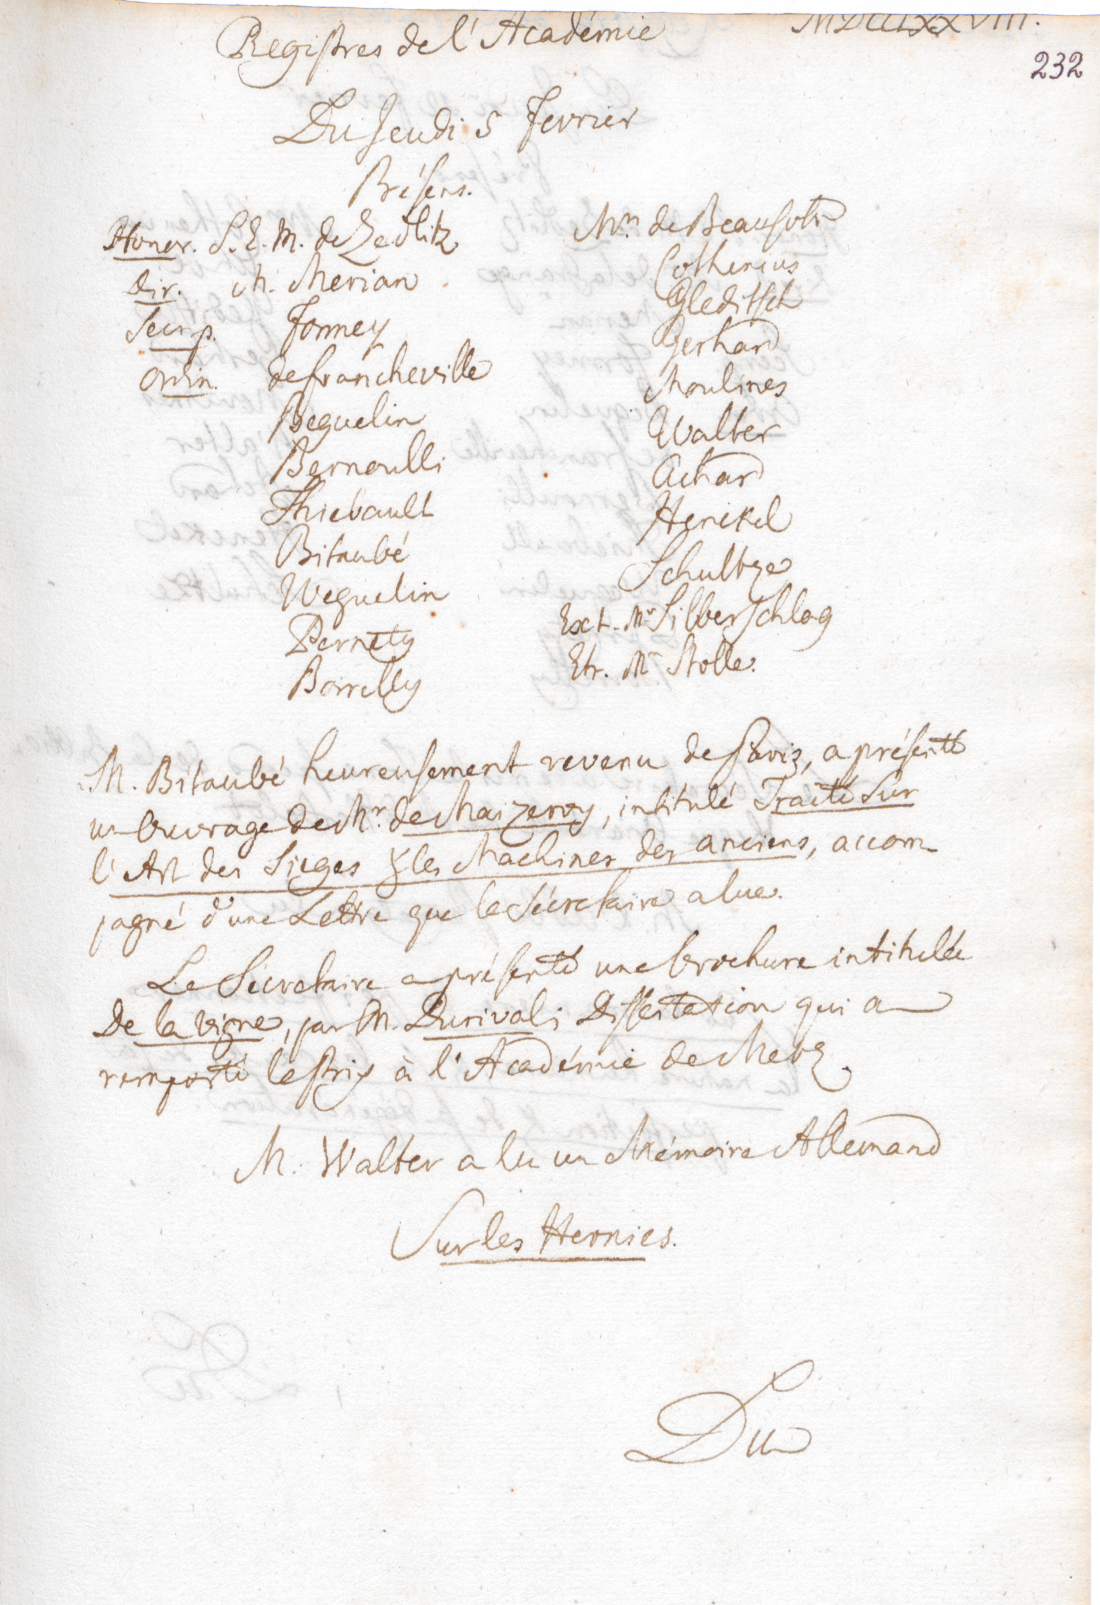 Registres de l'Académie MDCCLXXVIII.
232
Du Jeudi 5 Fevrier
Présens.
Honor. S. E. M. de Zedlitz
Dir. M. Merian
Secr. p. Formey
Ordin. de Francheville
Beguelin
Bernoulli
Thiebault
Bitaubé
Weguelin
Pernety
Borrelly
Mrs. de Beausobre
Cothenius
Gleditsch
Gerhard
Moulines
Walter
Achard
Henckel
Schultze
Ext. Mr Silberschlag
Etr. Mr Stolle.
M. Bitaubé heureusement revenu de Paris, a présenté
un Ouvrage de Mr. de Maizeroy, intitulé Traité sur
l'Art des Sieges & les Machines des anciens, accom
pagné d'une Lettre que le Sécretaire a lue.
Le Sécretaire a présenté une brochure intitulée
De la vigne, par M. Durival; Dissertation qui a
remporté le Prix à l'Académie de Metz.
M. Walter a lu un Mémoire Allemand
Sur les Hernies.
Du